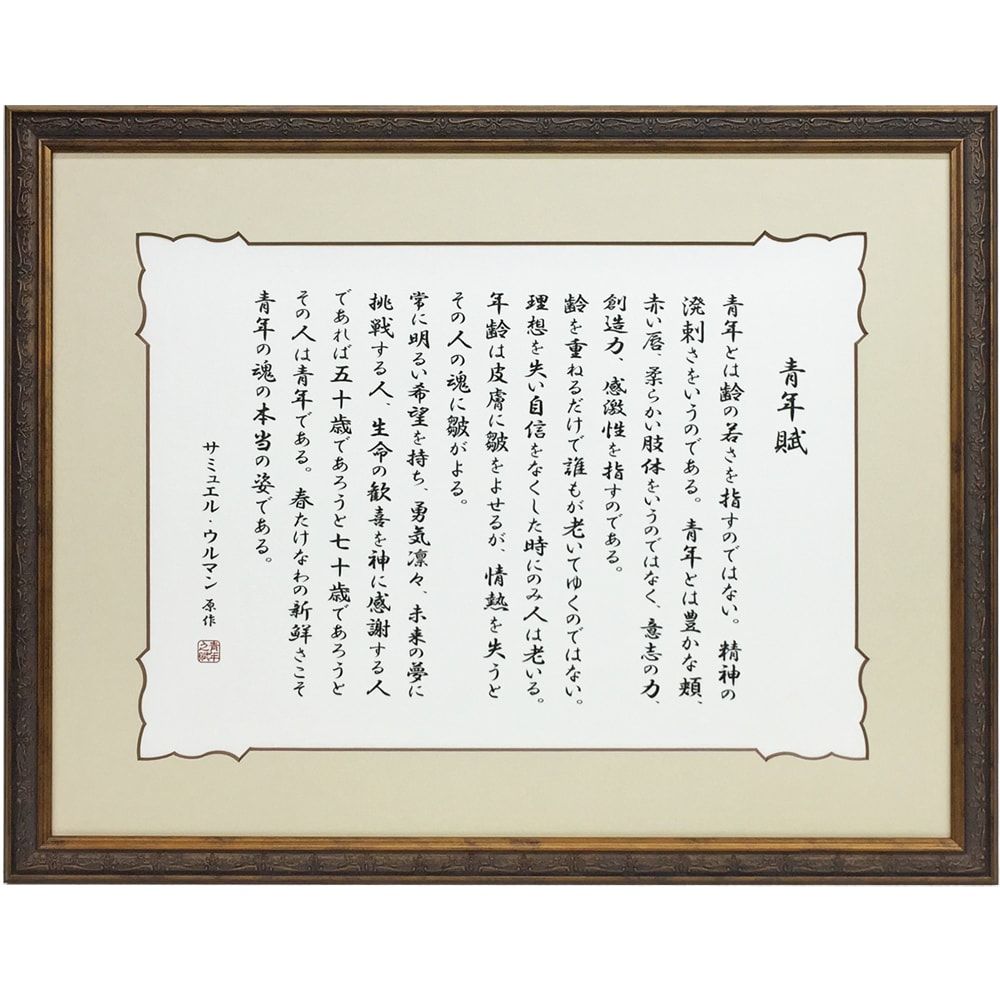 青年賦
青年とは齢の若さを指すのではない。精神の
溌剌さをいうのである。青年とは豊かな頬、
赤い唇、柔らかい肢体をいうのではなく、意志の力、
創造力、感激性を指すのである。
齢を重ねるだけで誰もが老いてゆくのではない。
理想を失い自信をなくした時にのみ人は老いる。
年齢は皮膚に皺をよせるが、情熱を失うと
その人の魂に皺がよる。
常に明るい希望を持ち、勇気凛々、未来の夢に
挑戦する人、生命の歓喜を神に感謝する人
であれば五十歳であろうと七十歳であろうと
その人は青年である。春たけなわの新鮮さこそ
青年の魂の本当の姿である。
サミュエル・ウルマン 原作
青年之賦